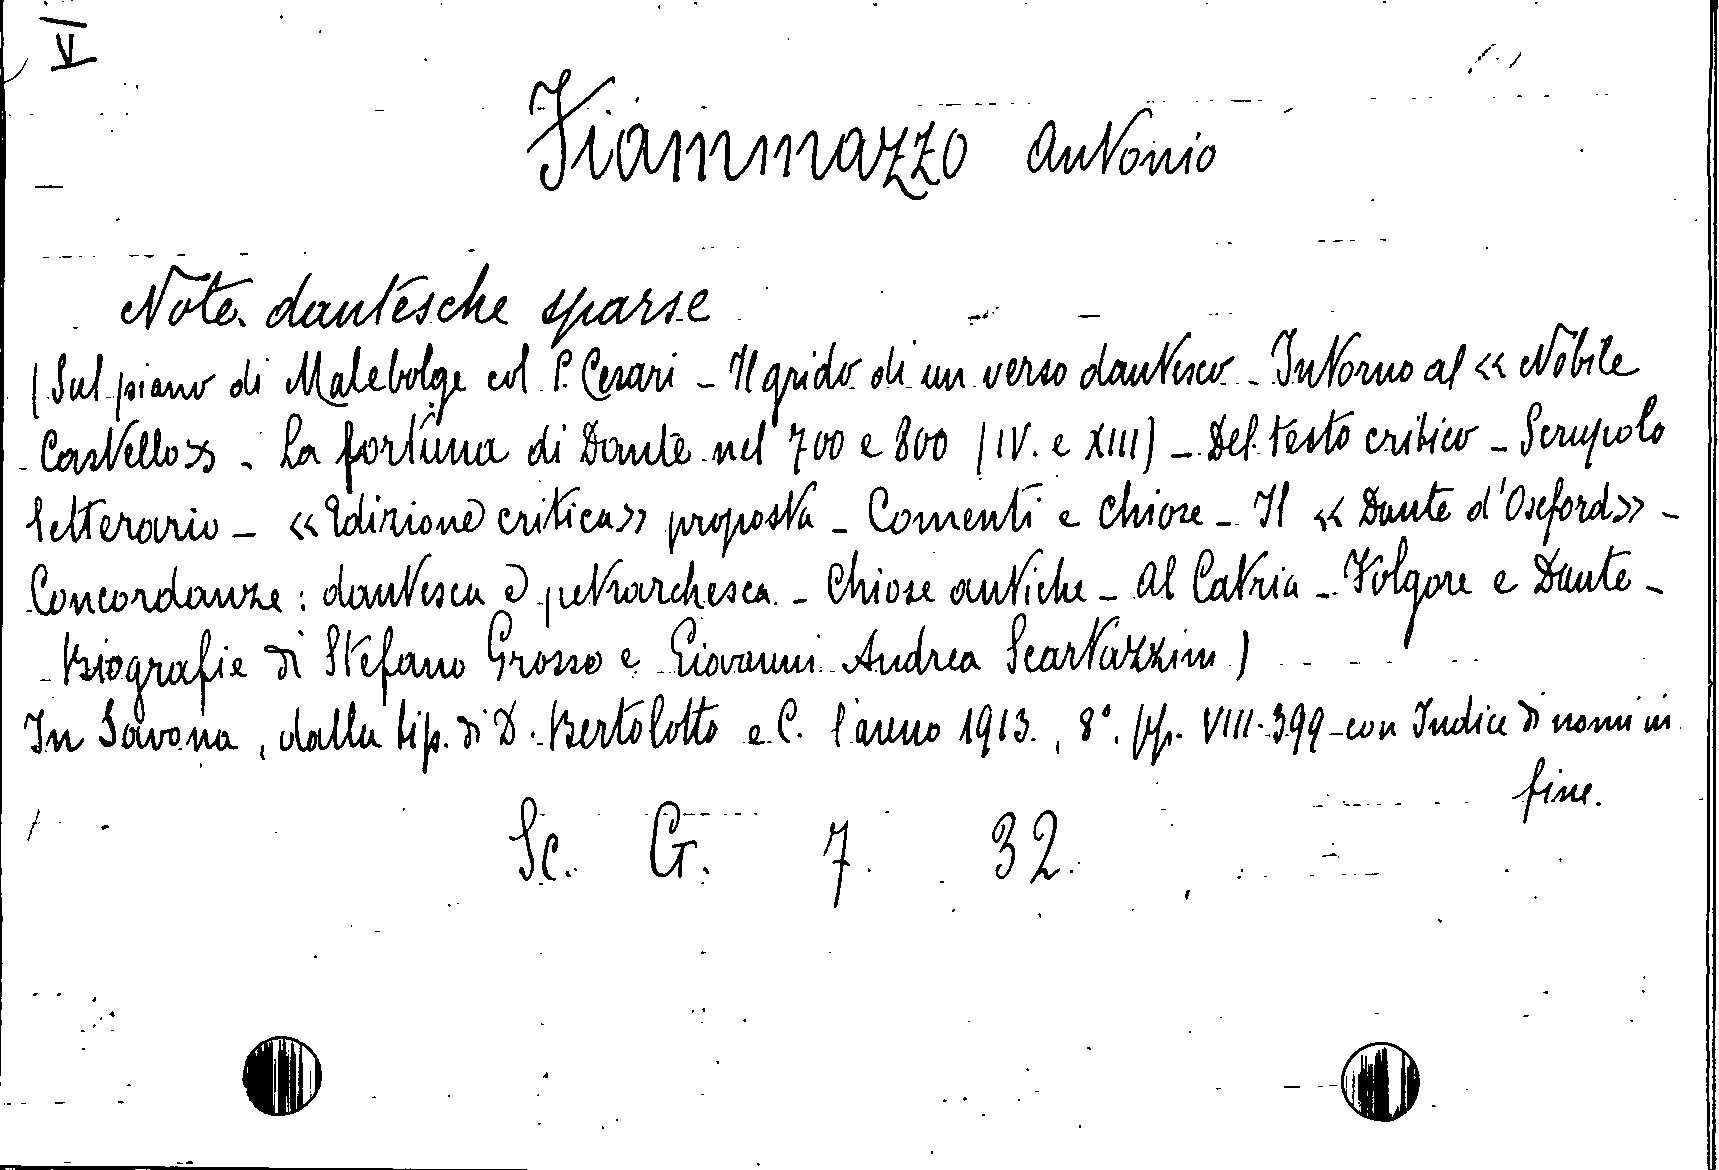 VI
Fiammazzo Antonio
Note dantesche sparse
(Sul piano di Malebolge col P. Cesari - Il grido di un verso dantesco - Intorno al « Nobile
Castello » - La fortuna di Dante nel 700 e 800 (IV. e XIII) - Del testo critico - Scrupolo
letterario - « Edizione critica » proposta - Comenti e chiose - Il « Dante d'Oxford » -
Concordanze: dantesca e petrarchesca - Chiose antiche - Al Catria - Folgore e Dante -
Biografie di Stefano Grosso e Giovanni Andrea Scartazzini)
In Savona, dalla tip. di D. Bertolotto e C. l'anno 1913., 8°. pp. VIII-399 - con Indice di nomi in
fine.
Sc. G. 7 32.